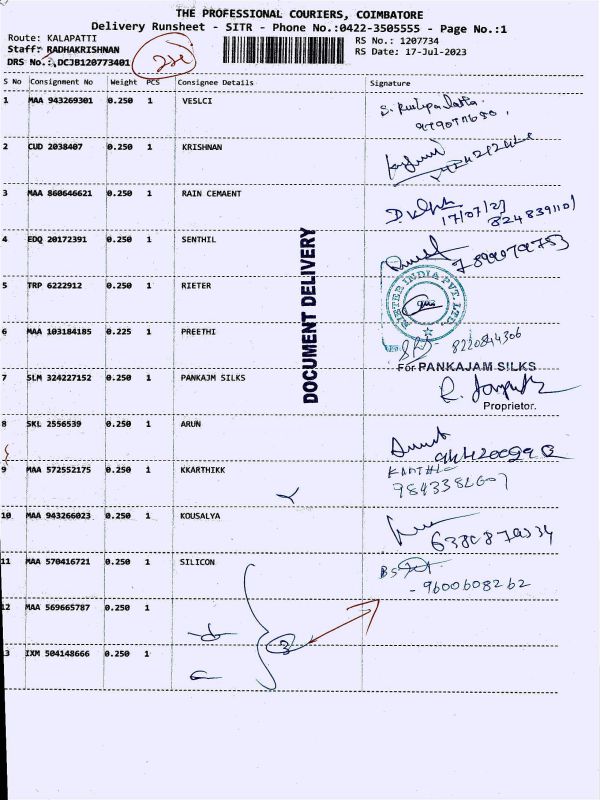 THE PROFESSIONAL COURIERS, COIMBATORE
Delivery Runsheet - SITR - Phone No.:0422-3505555 - Page No.:1
Route: KALAPATTI
RS No.: 1207734
Staff: RADHAKRISHNAN
RS Date: 17-Jul-2023
DRS No.:,DCJB120773401
S No Consignment No Weight PCS Consignee Details Signature
1 MAA 943269301 0.250 1 VESLCI
2 CUD 2038407 0.250 1 KRISHNAN
3 MAA 860646621 0.250 1 RAIN CEMAENT
17/07/23
8248391101
4 EDQ 20172391 0.250 1 SENTHIL
DOCUMENT DELIVERY
5 TRP 6222912 0.250 1 RIETER
RIETER INDIA PVT. LTD.
6 MAA 103184185 0.225 1 PREETHI
8220844306
7 SLM 324227152 0.250 1 PANKAJM SILKS
For PANKAJAM SILKS
Proprietor.
8 SKL 2556539 0.250 1 ARUN
9 MAA 572552175 0.250 1 KKARTHIKK
10 MAA 943266023 0.250 1 KOUSALYA
11 MAA 570416721 0.250 1 SILICON
- 9600608262
12 MAA 569665787 0.250 1
3
3 IXM 504148666 0.250 1